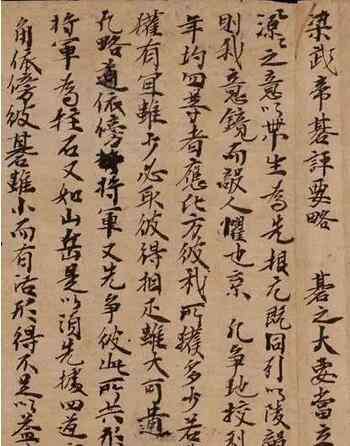 梁武帝碁評要略　碁之大要當立
源之意以帶生為先根元既固引以陵敵
則我意鏡而敵人懼也京　凡争地校利
年均四等者應比方彼我所獲多少若
獲有冝雖少必取彼得相足雖大可遺
凡略道依傍將軍又先争彼此所共形
將軍為柱石又如山岳是以須先據四道
角依傍彼碁雖小而有活形得不足以益